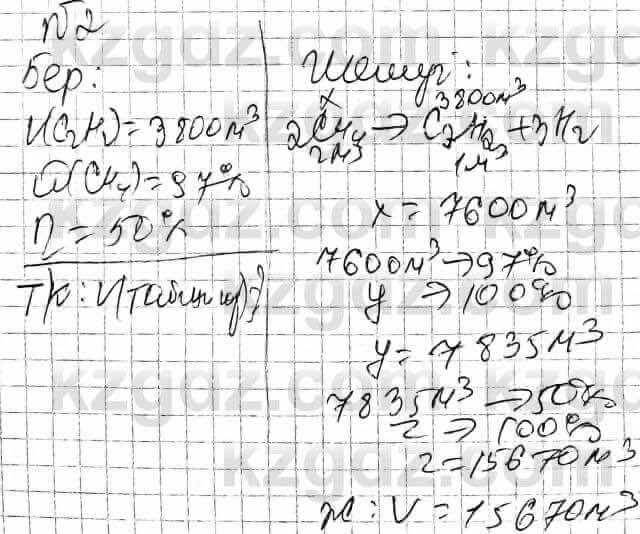 №2
Бер:
V(C₂H₂)=3800м³
ω(CH₄)=97%
η=50%
Тк: V(табиғи газ)?
Шешуі:
x 3800м³
2CH₄→C₂H₂+3H₂
2м³ 1м³
x=7600м³
7600м³→97%
y→100%
y=7835м³
7835м³→50%
z→100%
z=15670м³
Ж: V=15670м³
kzgdz.com